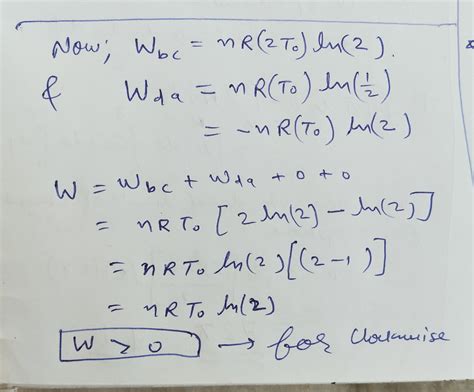 Now; W_bc = nR(2T₀) ln(2).
& W_da = nR(T₀) ln(1/2)
= -nR(T₀) ln(2)
W = W_bc + W_da + 0 + 0
= nRT₀ [2 ln(2) - ln(2)]
= nRT₀ ln(2) [(2-1)]
= nRT₀ ln(2)
W > 0 → for clockwise